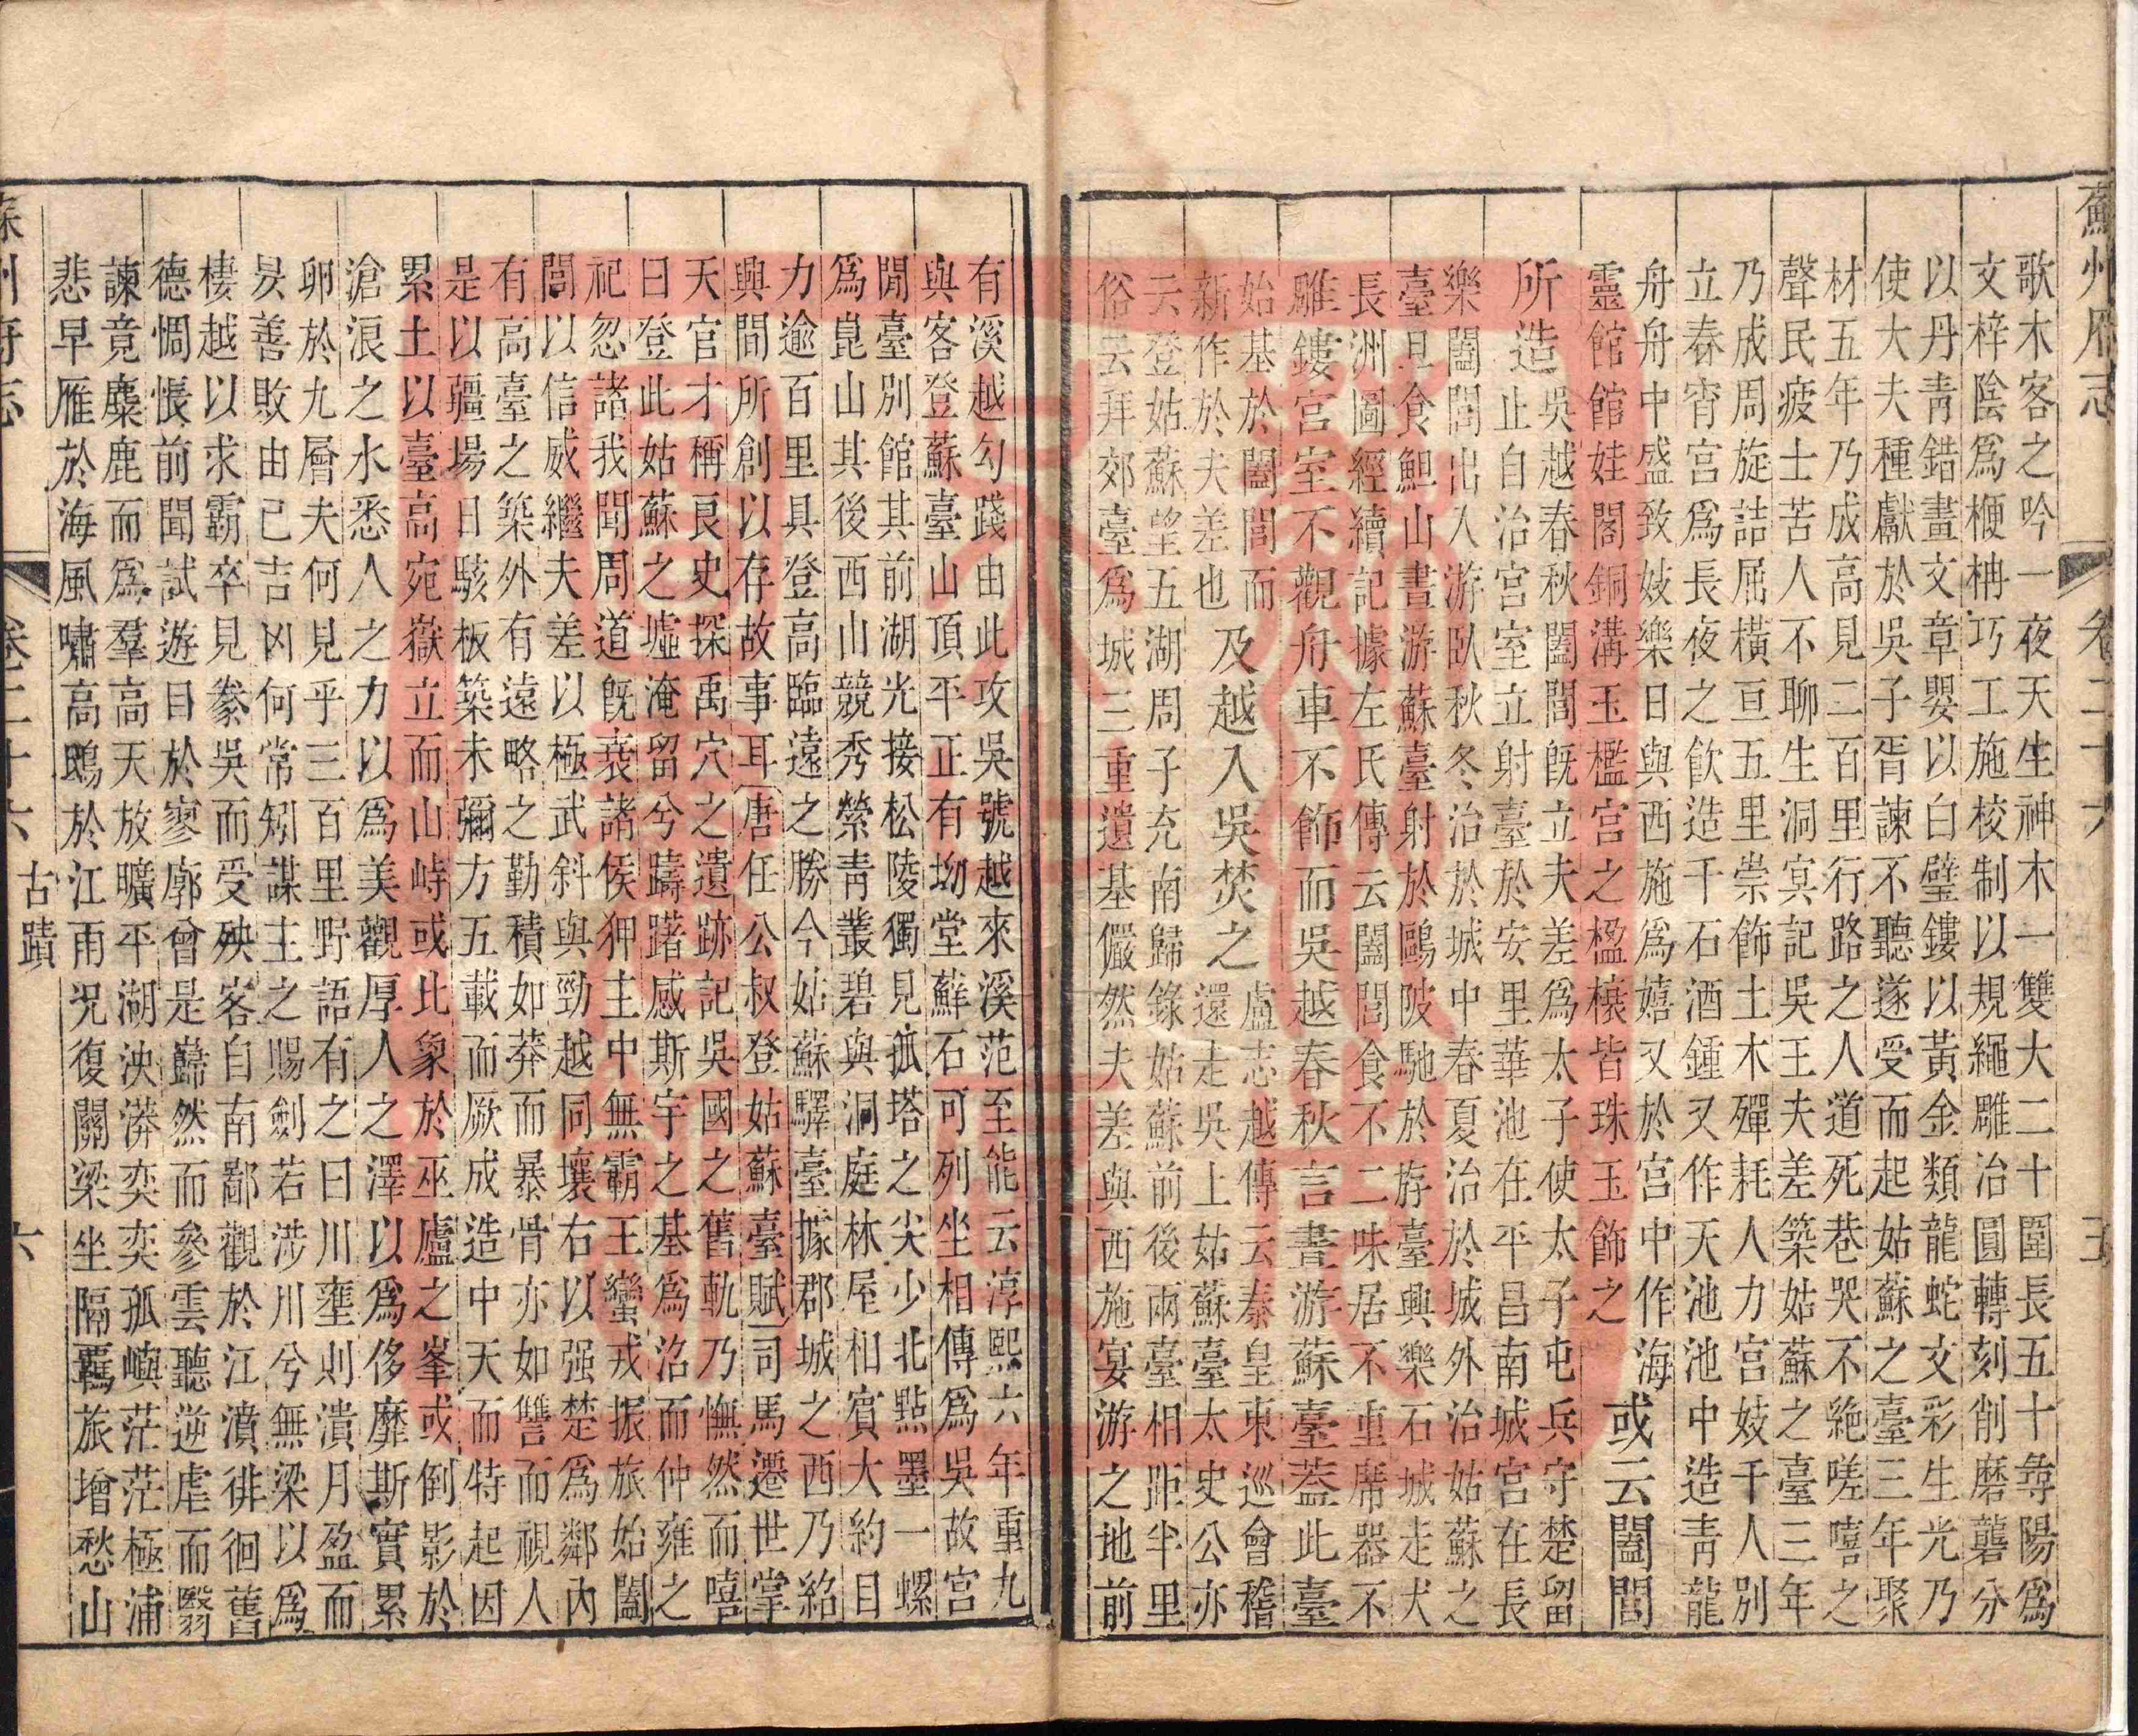 蘇州府志 卷二十六 五
歌木客之吟一夜天生神木一雙大二十圍長五十尋陽爲
文梓陰爲楩柟巧工施校制以規繩雕治圓轉刻削磨礱分
以丹靑錯畫文章嬰以白璧鏤以黃金類龍蛇文彩生光乃
使大夫種獻於吳子胥諫不聽遂受而起姑蘇之臺三年聚
材五年乃成高見二百里行路之人道死巷哭不絶嗟嘻之
聲民疲士苦人不聊生洞冥記吳王夫差築姑蘇之臺三年
乃成周旋詰屈橫亘五里崇飾土木殫耗人力宮妓千人別
立春宵宮爲長夜之飮造千石酒鍾又作天池池中造靑龍
舟舟中盛致妓樂日與西施爲嬉又於宮中作海
靈館館娃閣銅溝玉檻宮之楹榱皆珠玉飾之
或云闔閭
所造
吳越春秋闔閭旣立夫差爲太子使太子屯兵守楚留
止自治宮室立射臺於安里華池在平昌南城宮在長
樂闔閭出入游臥秋冬治於城中春夏治於城外治姑蘇之
臺旦食䱇山晝游蘇臺射於鷗陂馳於游臺興樂石城走犬
長洲圖經續記據左氏傳云闔閭食不二味居不重席器不
雕鏤宮室不觀舟車不飾而吳越春秋言晝游蘇臺蓋此臺
始基於闔閭而
新作於夫差也
及越入吳焚之
盧志越傳云秦皇東巡會稽
還走吳上姑蘇臺太史公亦
云登姑蘇望五湖周子充南歸錄姑蘇前後兩臺相距半里
俗云拜郊臺爲城三重遺基儼然夫差與西施宴游之地前
有溪越勾踐由此攻吳號越來溪范至能云淳熙六年重九
與客登蘇臺山頂平正有坳堂蘚石可列坐相傳爲吳故宮
閒臺別館其前湖光接松陵獨見孤塔之尖少北點墨一螺
爲崑山其後西山競秀縈靑叢碧與洞庭林屋相賓大約目
力逾百里具登高臨遠之勝今姑蘇驛臺據郡城之西乃紹
興間所創以存故事耳唐任公叔登姑蘇臺賦司馬遷世掌
天官才稱良史探禹穴之遺跡記吳國之舊軌乃憮然而嘻
曰登此姑蘇之墟淹留兮躊躇感斯宇之基爲沼而仲雍之
祀忽諸我聞周道旣衰諸侯狎主中無霸王蠻戎振旅始闔
閭以信威繼夫差以極武斜與勁越同壤右以强楚爲鄰內
有高臺之築外有遠略之勤積如莽而暴骨亦如讐而視人
是以疆場日駭板築未彌方五載而厥成造中天而特起因
累土以臺高宛嶽立而山峙或比象於巫廬之峯或倒影於
滄浪之水悉人之力以爲美觀厚人之澤以爲侈靡斯實累
卵於九層夫何見乎三百里野語有之曰川壅則潰月盈而
昃善敗由己吉凶何常矧謀主之賜劍若涉川兮無梁以爲
棲越以求霸卒見豢吳而受殃客自南鄙觀於江濆徘徊舊
德惆悵前聞試遊目於寥廓曾是巋然而參雲聽逆虐而翳
諫竟麋鹿而爲羣高天放曠平湖泱漭奕奕孤嶼茫茫極浦
悲早雁於海風嘯高鴎於江雨況復關梁坐隔羈旅增愁山
蘇州府志 卷二十六 古蹟 六